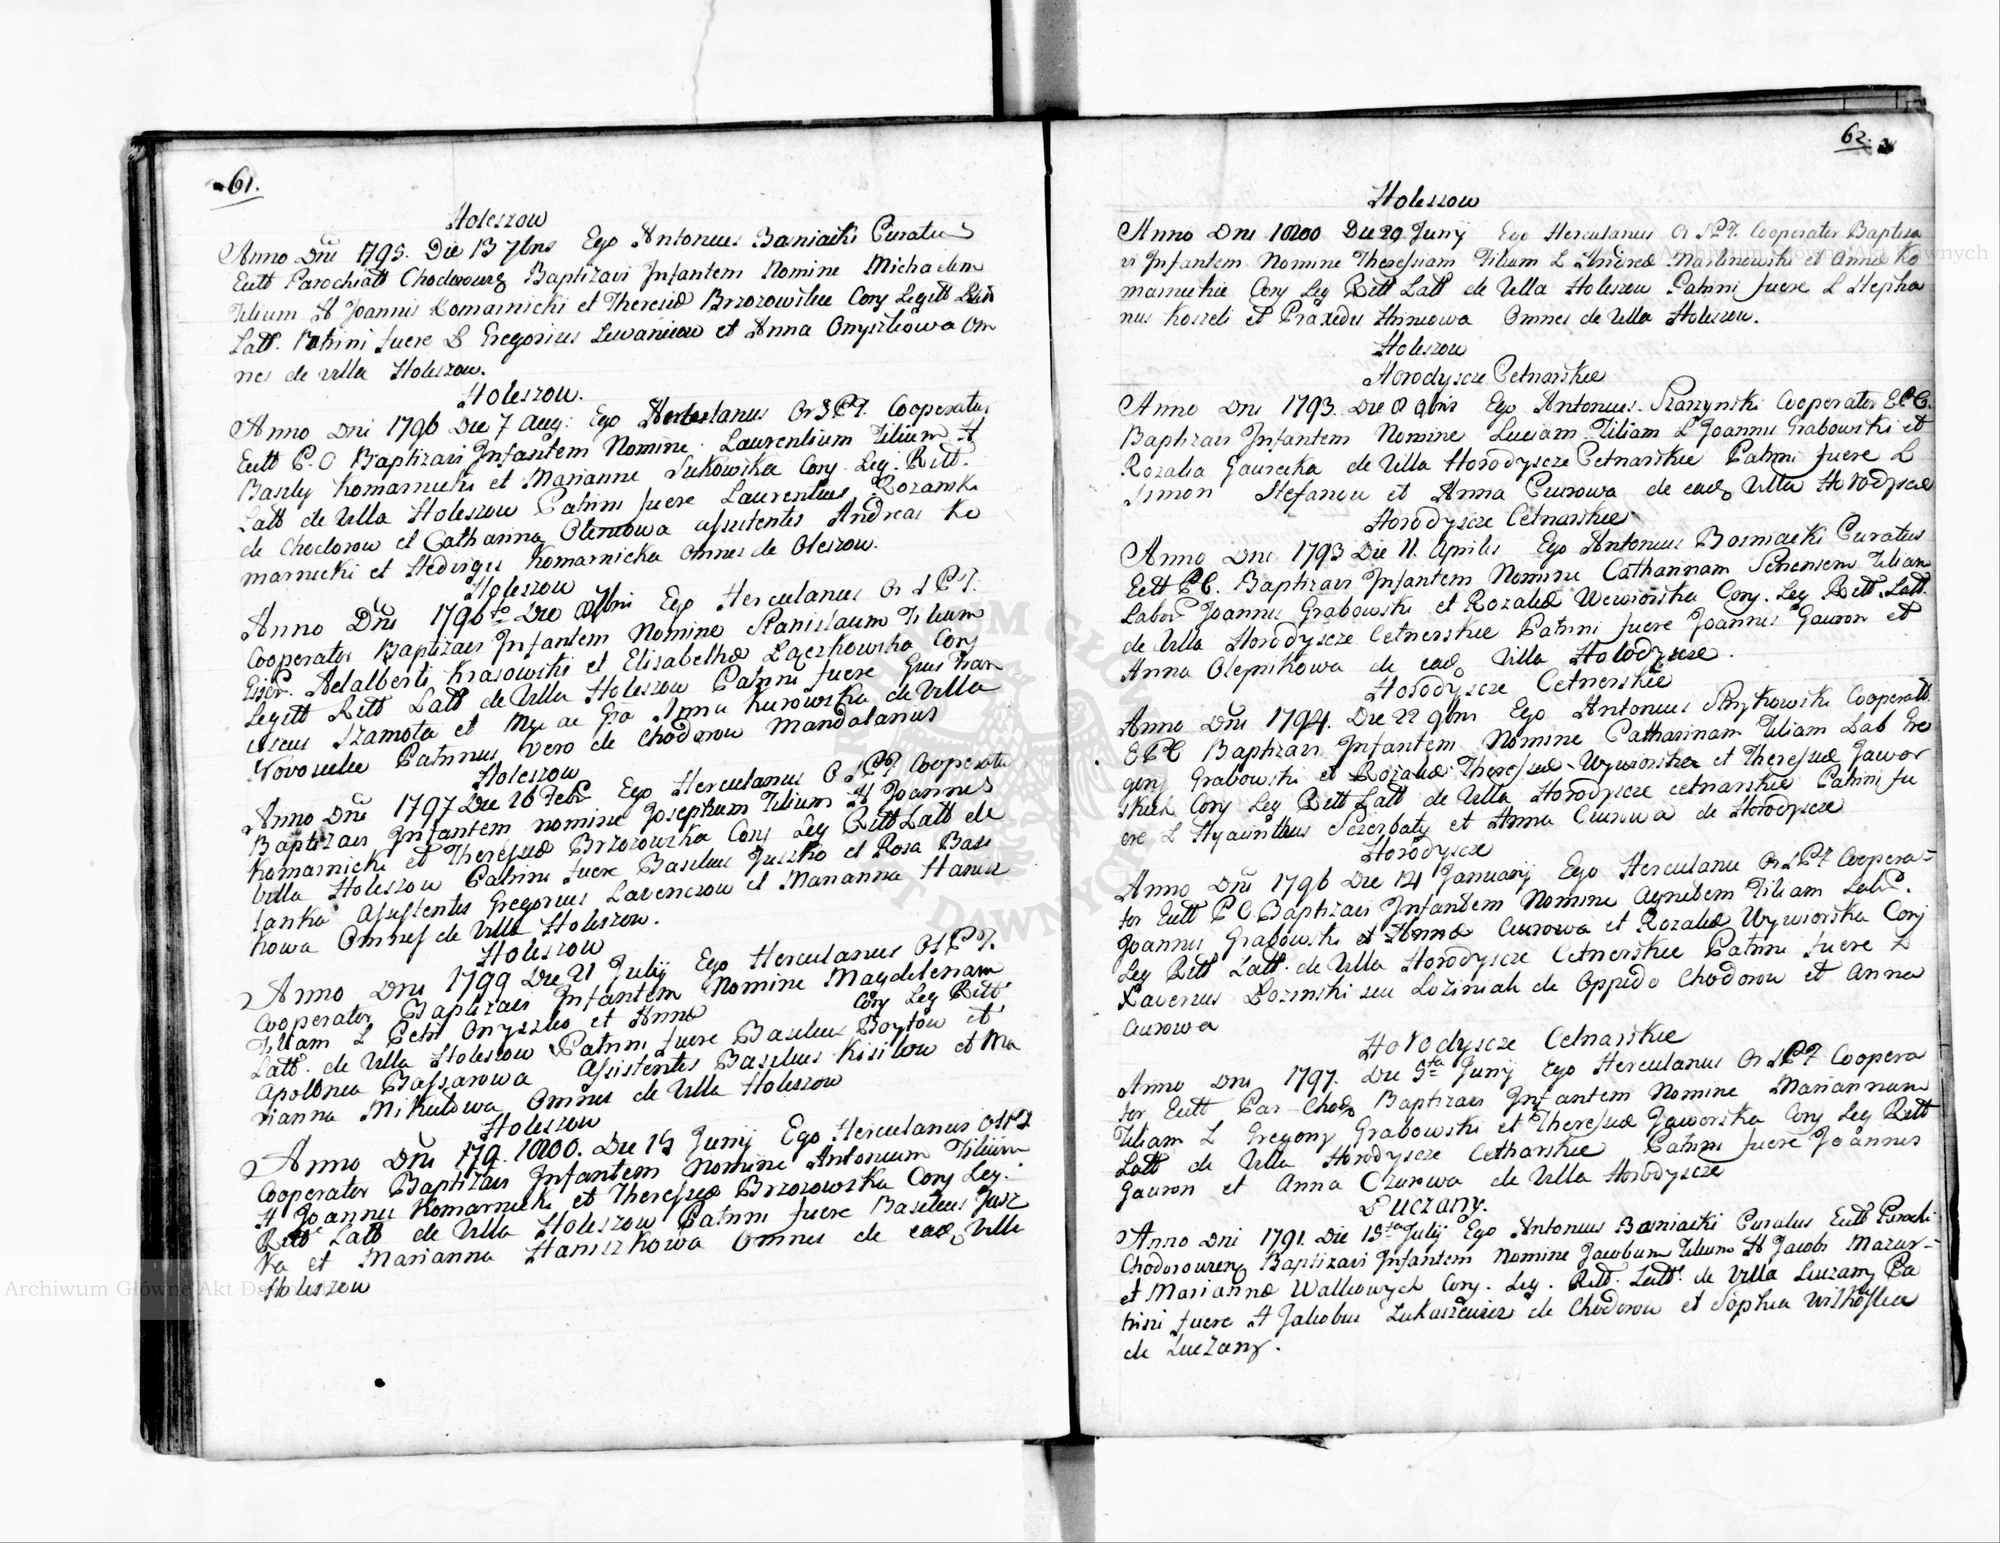 61.
Holeszow
Anno Dni 1795. Die 13 7bris Ego Antonius Baniacki Curatus
Eccl Parochiali Chodoroviens Baptizavi Infantem Nomine Michaelem
Filium H Joannis Komarnicki et Theresiæ Brzozowskie Conj Legitt
Latt. Patrini fuere L Gregorius Lewaniców et Anna Onyszkowa Om
nes de villa Holeszow.
Holeszow.
Anno Dni 1796 Die 7 Aug: Ego Herculanus Or S.P.F. Cooperator
Eccl P.C Baptizavi Infantem Nomine Laurentium Filium H
Basily Komarnicki et Marianne Sukowska Conj Leg: Ritt.
Latt de Villa Holeszow Patrini fuere Laurentius
de Chodorow et Catharina assistentes Andreas Ko
marnicki et Hedvigis Komarnicka Omnes de Oleszow.
Holeszow
Anno Dni 1796to Die 7bri Ego Herculanus Or S P F.
Cooperator Baptizavi Infantem Nomine Stanislaum Filium
Adalberti Krasowski et Elisabethæ Lączkowska Conj
Legitt Ritt Latt de Villa Holeszow Patrini fuere Gnus Fran
ciscus Szamota et Anna Kurowska de Villa
Novosielce Patrinus vero de Chodorow Mandatarius
Holeszow
Anno Dni 1797 Die 26 Febr Ego Herculanus O S P F Cooperator
Baptizavi Infantem nomine Josephum Filium H Joannes
Komarnicki et Theressæ Brzozowska Conj Leg Ritt Latt de
Villa Holeszow Patrini fuere Basilius Juszko et Rosa Basi
lanka Assistentes Gregorius Lavenczow et Marianna Hanisz
kowa Omnes de Villa Holeszow.
Holeszow
Anno Dni 1799 Die 21 Julij Ego Herculanus O S P F.
Cooperator Baptizavi Infantem Nomine Magdalenam
Filiam L Petri Onyszko et Annæ Conj Leg Ritt
Latt. de Villa Holeszow Patrini fuere Basilius Boytow et
Apolonia Bassarowa Assistentes Basilius Kisilow et Ma
rianna Mikulowa Omnes de Villa Holeszow
Holeszow
Anno Dni 179 1800. Die 15 Junij Ego Herculanus
Cooperator Baptizavi Infantem Nomine Antonium Filium
H Joannis Komarnicki et Theressæ Brzozowska Conj Leg:
Ritt Latt de Villa Holeszow Patrini fuere Basilius Jusz
ko et Marianna Haniszkowa Omnes de ead Villa
Holeszow
62.
Holeszow
Anno Dni 1800 Die 29 Junij Ego Herculanus Or S P F. Cooperator Baptiza
vi Infantem Nomine Theressiam Filiam L Andreæ Malinowski et Annæ Ko
marnickie Conj Leg Ritt Latt de Villa Holeszow Patrini fuere L Stepha
nus Koszeli et Praxedis Omnes de Villa Holeszow.
Holeszow
Horodyscze Cetnarskie
Anno Dni 1793. Die 8 9bris Ego Antonius Staszynski Cooperator E P C.
Baptizavi Infantem Nomine Luciam Filiam L Joannis Grabowski et
Rozalia de Villa Horodyscze Cetnarskie Patrini fuere L
Simon Stefanow et Anna Curowa de ead Villa Horodyscze
Horodyscze Cetnarskie
Anno Dni 1793 Die 11. Aprilis Ego Antonius Bosniacki Curatus
Eccl P C. Baptizavi Infantem Nomine Catharinam Senensem Filiam
Labor Joannis Grabowski et Rozaliæ Wewiorska Conj. Leg Ritt. Latt.
de Villa Horodyscze Cetnerskie Patrini fuere Joannes Gauron et
Anna Olepnikowa de ead Villa Holodyscze.
Horodyscze Cetnerskie
Anno Dni 1794. Die 22 9bris Ego Antonius Cooperatt
E P C Baptizavi Infantem Nomine Catharinam Filiam Lab Gre
gorj Grabowski et Rozaliæ Theressæ Wywiorska et Theressæ Jawor
skich Conj Leg Ritt Latt de Villa Horodyscze cetnarskie Patrini fu
ere L Hyacinthus Szczerbaty et Anna Czurowa de Horodyscze
Horodyscze
Anno Dni 1796 Die 14 January Ego Herculanu Or S P F Coopera-
tor Eccl P C. Baptizavi Infantem Nomine Agnetem Filiam Lab.
Joannis Grabowski et Annæ Curowa et Rozaliæ Wywiorska Conj
Leg Ritt Latt. de Villa Horodyscze Cetnerskie Patrini fuere L
Xaverius Lozinski seu Loziniak de Oppido Chodorow et Anna
Curowa
Horodyscze Cetnarskie
Anno Dni 1797. Die 5ta Junij Ego Herculanus Or S P F Coopera
tor Eccl Par Chod Baptizavi Infantem Nomine Mariannam
Filiam L Gregorij Grabowski et Theressæ Jaworska Conj Leg Ritt
Latt de Villa Horodyscze Cetnarskie Patrini fuere Joannes
Gauron et Anna Czurowa de Villa Horodyscze
Luczany.
Anno Dni 1791. Die 15ta Julij Ego Antonius Baniacki Curatus Eccl Parochi
Chodoroviens Baptizavi Infantem Nomine Jacobum Filium H Jacobi Mazur-
et Marianæ Walkowych Conj. Leg. Ritt. Latt. de Villa Luczany Pa
trini fuere H Jakobus Lukasiewicz de Chodorow et Sophia
de Luczany.
Archiwum Główne Akt Dawnych
Archiwum Główne Akt Dawnych